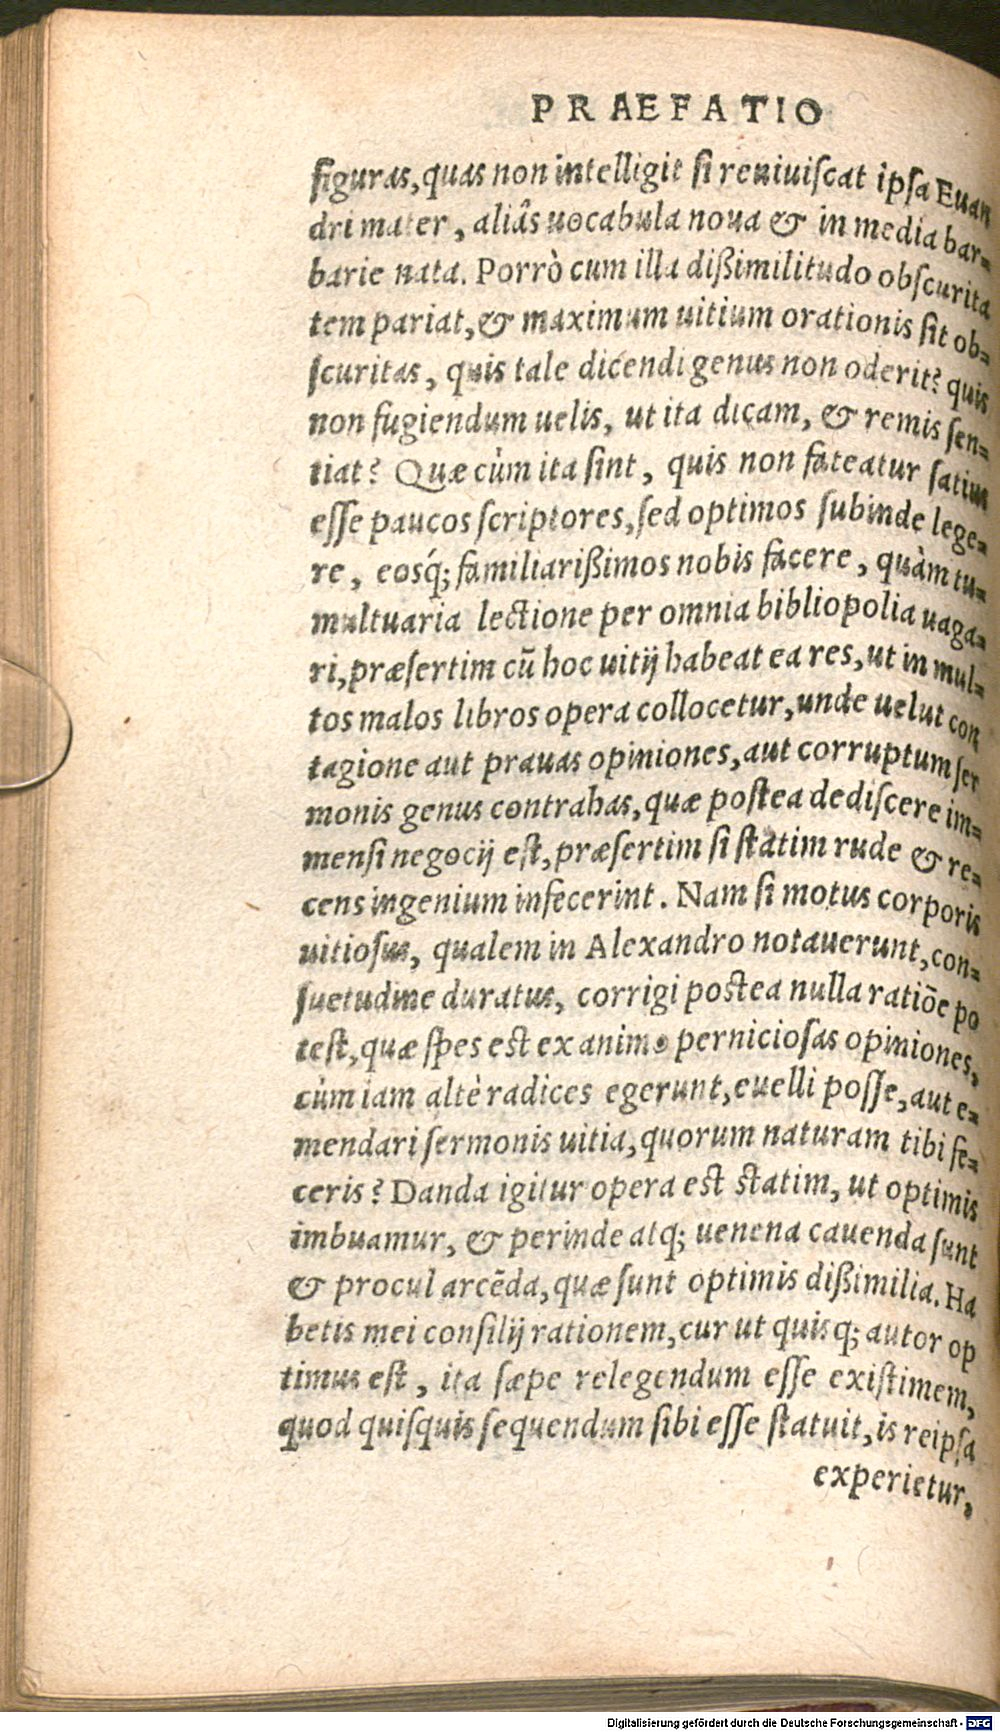 PRAEFATIO
figuras, quas non intelligit si reuiuiscat ipsa Euan
dri mater, aliâs uocabula noua & in media bar-
barie nata. Porrò cum illa dißimilitudo obscurita
tem pariat, & maximum uitium orationis sit ob-
scuritas, quis tale dicendi genus non oderit? quis
non fugiendum uelis, ut ita dicam, & remis sen-
tiat? Quæ cùm ita sint, quis non fateatur satius
esse paucos scriptores, sed optimos subinde lege-
re, eosq́; familiarißimos nobis facere, quàm tu-
multuaria lectione per omnia bibliopolia uaga-
ri, præsertim cū hoc uitij habeat ea res, ut in mul-
tos malos libros opera collocetur, unde uelut con
tagione aut prauas opiniones, aut corruptum ser
monis genus contrahas, quæ postea dediscere im-
mensi negocij est, præsertim si statim rude & re-
cens ingenium infecerint. Nam si motus corporis
uitiosus, qualem in Alexandro notauerunt, con-
suetudine duratus, corrigi postea nulla ratiōe po
test, quæ spes est ex animo perniciosas opiniones,
cùm iam altè radices egerunt, euelli posse, aut e-
mendari sermonis uitia, quorum naturam tibi fe-
ceris? Danda igitur opera est statim, ut optimis
imbuamur, & perinde atq; uenena cauenda sunt
& procul arcēda, quæ sunt optimis dißimilia. Ha
betis mei consilij rationem, cur ut quisq; autor op
timus est, ita sæpe relegendum esse existimem,
quod quisquis sequendum sibi esse statuit, is reipsa
experietur,
Digitalisierung gefördert durch die Deutsche Forschungsgemeinschaft - DFG